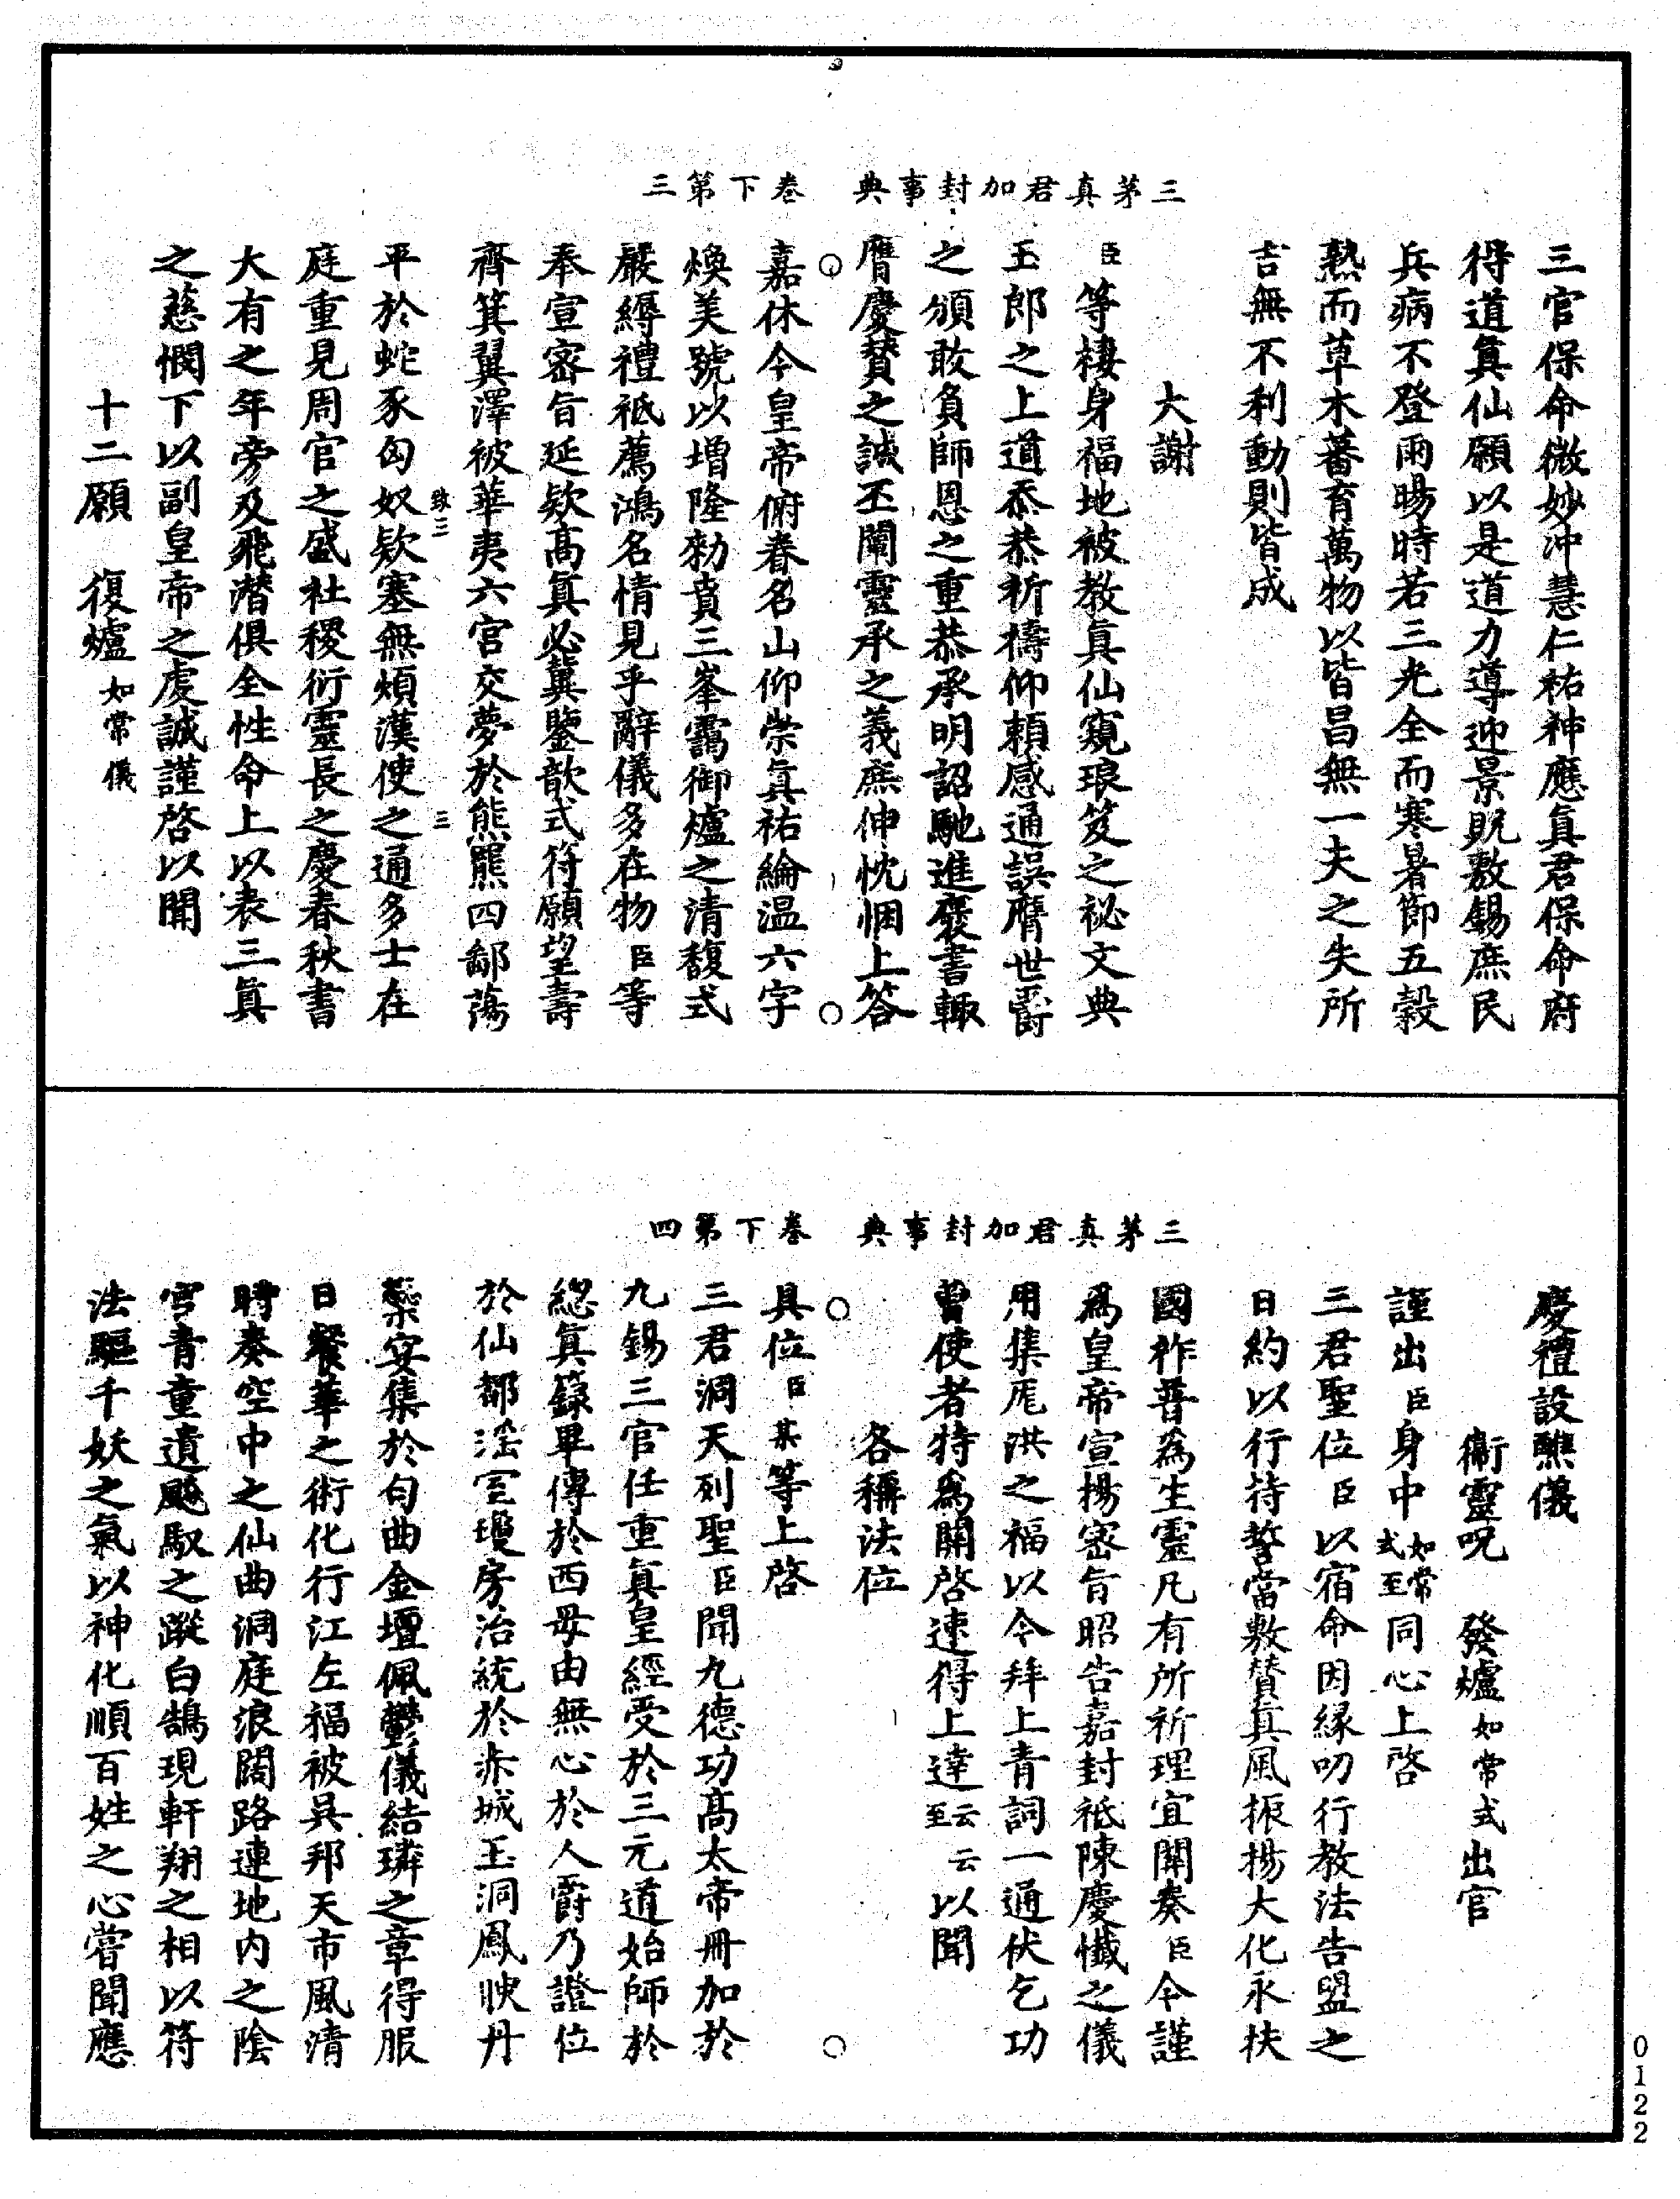 三茅真君加封事典　卷下第三
三官保命微妙冲慧仁祐神應真君保命府
得道真仙願以是道力導迎景貺敷錫庶民
兵病不登雨暘時若三光全而寒暑節五穀
熟而草木蕃育萬物以皆昌無一夫之失所
吉無不利動則皆成
大謝
臣等棲身福地被教真仙窺琅笈之祕文典
玉郎之上道忝恭祈禱仰賴感通誤膺世爵
之頒敢負師恩之重恭承明詔馳進褒書輙
膺慶賛之誠丕闡靈承之義庶伸忱悃上答
嘉休今皇帝俯眷名山仰崇真祐綸溫六字
煥美號以増隆勑賁三峯靄御爐之清馥式
嚴縟禮祗薦鴻名情見乎辭儀多在物臣等
奉宣宻旨延欵高真必冀鑒歆式符願望壽
齊箕翼澤被華夷六宮交夢於熊羆四鄙蕩
平於蛇豕匈奴欵塞無煩漢使之通多士在
庭重見周官之盛社稷衍靈長之慶春秋書
大有之年旁及飛潛俱全性命上以表三真
之慈憫下以副皇帝之虔誠謹啓以聞
十二願　復爐如常儀
三茅真君加封事典　卷下第四
慶禮設醮儀
衞靈呪　發爐如常式出官
謹出臣身中如常式至同心上啓
三君聖位臣以宿命因緣叨行教法告盟之
日約以行持誓當敷賛真風振揚大化永扶
國祚普為生靈凡有所祈理宜闡奏臣今謹
為皇帝宣揚宻旨昭告嘉封祗陳慶懺之儀
用集厖洪之福以今拜上青詞一通伏乞功
曹使者特為關啓速得上達云至云以聞
各稱法位
具位臣某等上啓
三君洞天列聖臣聞九德功高太帝冊加於
九錫三官任重真皇經受於三元道始師於
緫真籙畢傳於西母由無心於人爵乃證位
於仙都滛室瓊房治統於赤城玉洞鳳腴丹
蘂宴集於句曲金壇佩鬱儀結璘之章得服
日餐華之術化行江左福被吳邦天市風清
時奏空中之仙曲洞庭浪闊路連地内之陰
宮青童遺飈馭之蹤白鵠現軒翔之相以符
法驅千妖之氣以神化順百姓之心嘗聞應
0122